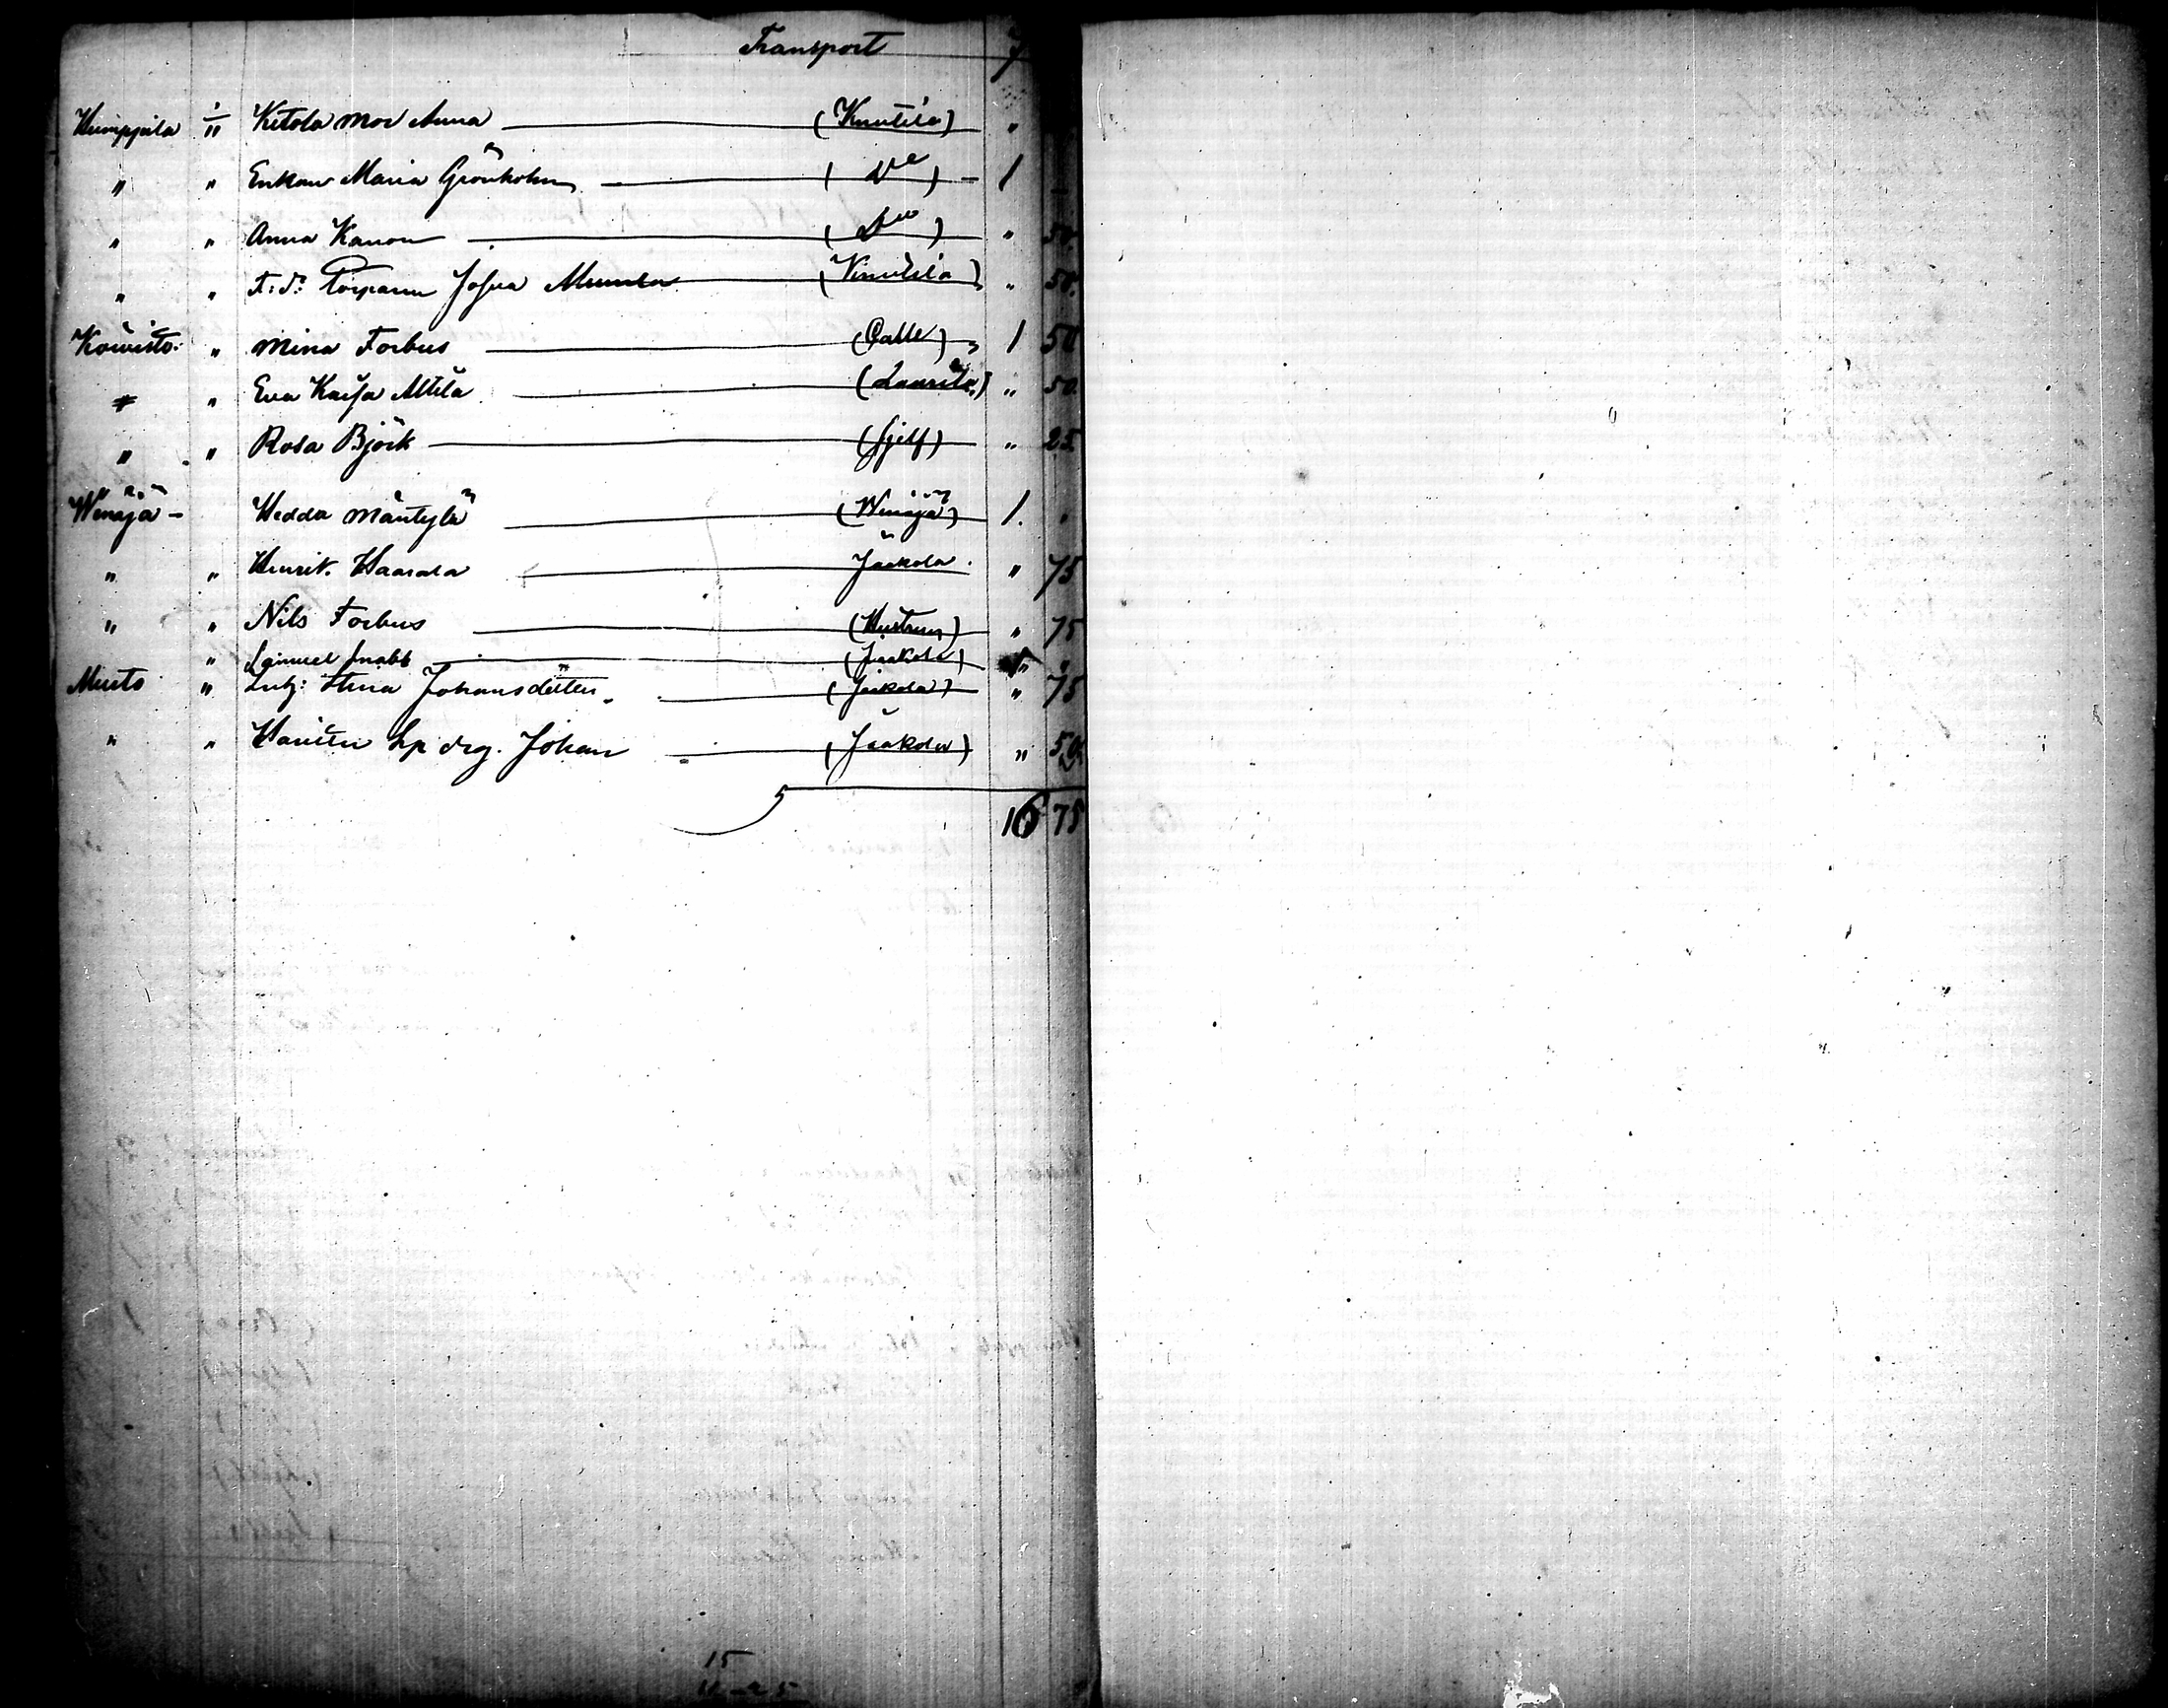 Transport 7
Humppila 1/11 Kitola mor Anna (Knuutila) "
" " Enkan Maria Grönholm (Do) 1 -
" " Anna Kanon (Do) " 50.
" " F: d: Torparn Josua (Knuutila) " 50.
Koivisto: " Mina Forbus (Calle) 1 50
" " Eva Kaisa Attila (Laurila) " 50.
" " Rosa Björk (sjelf) " 25.
Wenäjä - Hedda Mäntylä (Wenäjä) 1. "
" " Henrik Haarala Jaakola. " 75
" " Nils Forbus (Hustrun) " 75
" Samuel Snabb (Jaakola) "
Murto " Inh: Stina Johansdotter (Jaakola) " 75
" " drg. Johan (Jaakola) " 50.
16 75
15